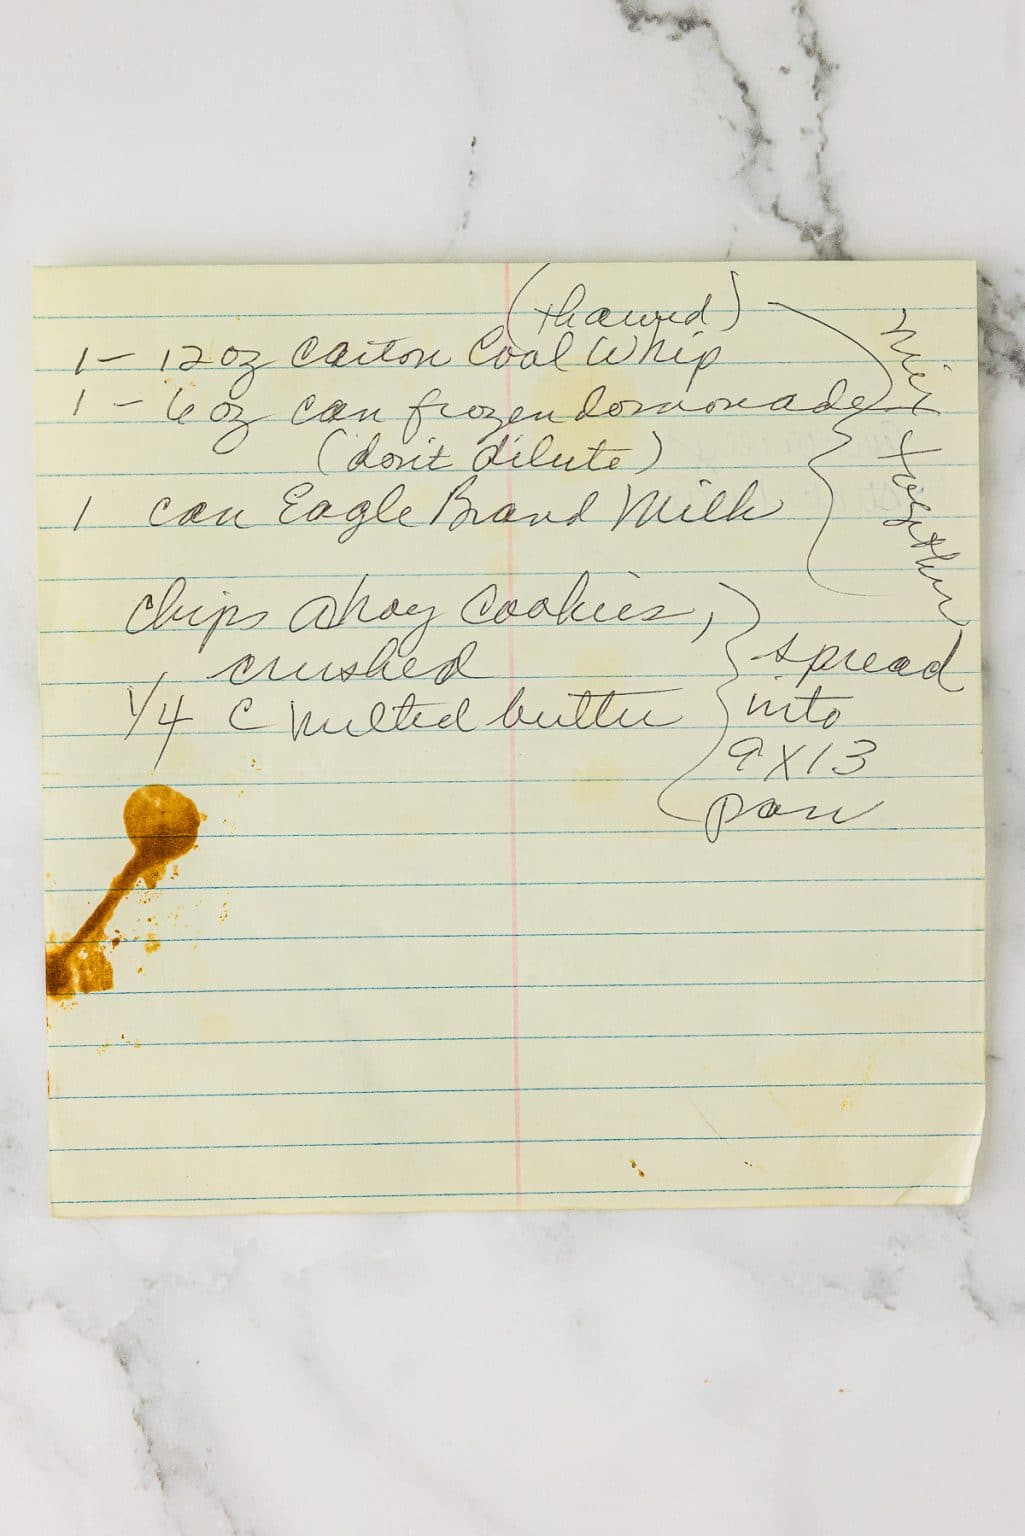 (thawed)
1 - 12 oz carton Cool Whip
1 - 6 oz can frozen lemonade
(don't dilute)
1 can Eagle Brand Milk
mix together
Chips Ahoy Cookies,
crushed
1/4 C melted butter
spread
into
9X13
pan